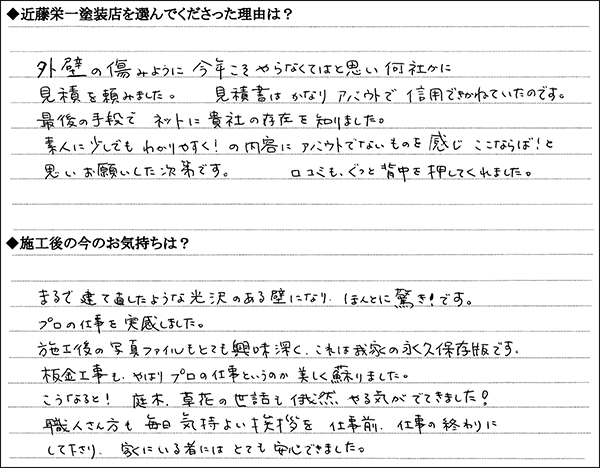 ◆近藤栄一塗装店を選んでくださった理由は？
外壁の傷みように 今年こそやらなくてはと思い 何社かに
見積を頼みました。 見積書はかなりアバウトで 信用できかねていたのです。
最後の手段で ネットに貴社の存在を知りました。
素人に少しでも わかりやすく！の内容にアバウトでないものを感じ ここならば！と
思いお願いした次第です。 口コミも、ぐっと背中を押してくれました。
◆施工後の今のお気持ちは？
まるで建て直したような光沢のある壁になり、ほんとに驚き！です。
プロの仕事を実感しました。
施工後の写真ファイルもとても興味深く、これは我家の永久保存版です。
板金工事も、やはりプロの仕事というのか 美しく蘇りました。
こうなると！ 庭木、草花の世話も俄然、やる気がでてきました！
職人さん方も 毎日気持よい挨拶を 仕事前、仕事の終わりに
して下さり、家にいる者には とても安心できました。